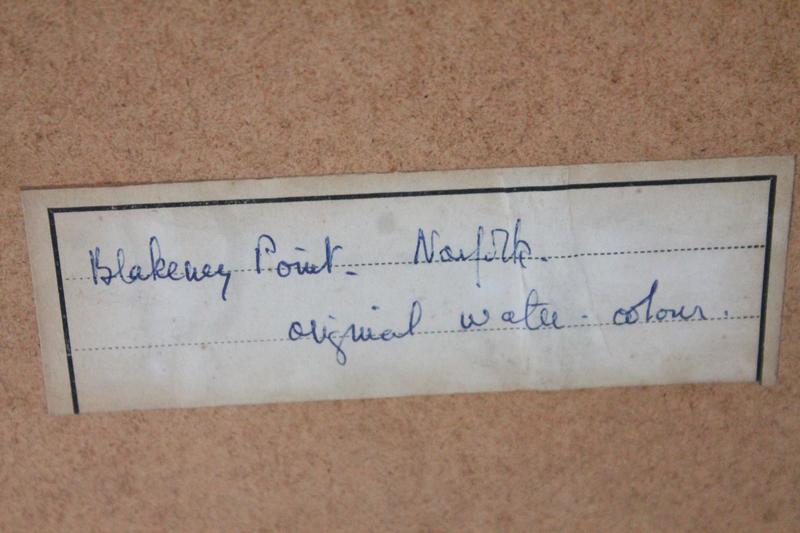 Blakeney Point. Norfolk.
original water-colour.